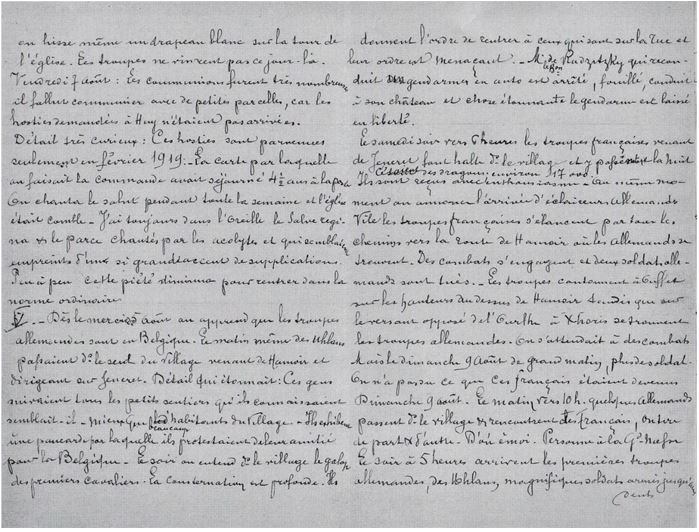 on hisse même un drapeau blanc sur la tour de
l'église. Les troupes ne vinrent pas ce jour là.
Vendredi 7 août : Les communions furent très nombreuses
il fallut communier avec de petits parcelles, car les
hosties demandées à Huy n'étaient pas arrivées.
Détail très curieux : Ces hosties sont parvenues
seulement en février 1919. - La carte par laquelle
on faisait la commande avait séjourné 4½ ans à la poste
On chanta le salut pendant toute la semaine et l'église
était comble - J'ai toujours dans l'oreille le Salve regi-
na & le parce chantés par les acolytes et qui semblaient
empreints d'un si grand accent de supplications.
Peu à peu cette piété diminua pour rentrer dans la
norme ordinaire
- Dès le mercredi 5 août on apprend que les troupes
allemandes sont en Belgique. Le matin même des Uhlans
passaient ds le seul du village venant de Hamoir et
dirigeant sur Jeneret. Détail qui étonnait : Ces gens
suivaient tous les petits sentiers qu'ils connaissaient
semblait-il - mieux que les habitants du village - Ils exhibent
une pancarte par laquelle ils protestaient de leur amitié
pour la Belgique - Le soir on entend ds le village le galop
des premiers cavaliers. La consternation est profonde. Ils
donnent l'ordre de rentrer à ceux qui sont sur la rue et
leur ordre est menaçant. - M. de Radzitzky qui recon-
duit un gendarme en auto est arrêté, fouillé, conduit
à son château et chose étonnante le gendarme est laissé
en liberté.
Le samedi soir vers 6 heures les troupes françaises venant
de Jeneret font halte ds le village et y passent la nuit
des dragons environ 17 000.
Ils sont reçus avec enthousiasme - Au même mo-
ment on annonce l'arrivée d'éclaireurs Allemands
Vite les troupes françaises s'élancent par tous les
chemins vers la route de Hamoir où les Allemands se
trouvent. Des combats s'engagent et deux soldats alle-
mands sont tués. - Les troupes cantonnent à Ouffet
sur les hauteurs du dessus de Hamoir tandis que sur
le versant opposé de l'Ourthe à Xhoris se trouvent
les troupes allemandes. On s'attendait à des combats
Mais le dimanche 9 Août de grand matin, plus de soldat.
On n'a pas su ce que ces français étaient devenus
Dimanche 9 août. Le matin vers 10h. quelques Allemands
passent ds le village & rencontrent des Français, on tire
de part & d'autre. D'où émoi. Personne à la Gde Messe
Le soir à 5 heures arrivent les premières troupes
allemandes, des Uhlans, magnifiques soldats armés jusqu'aux
dents